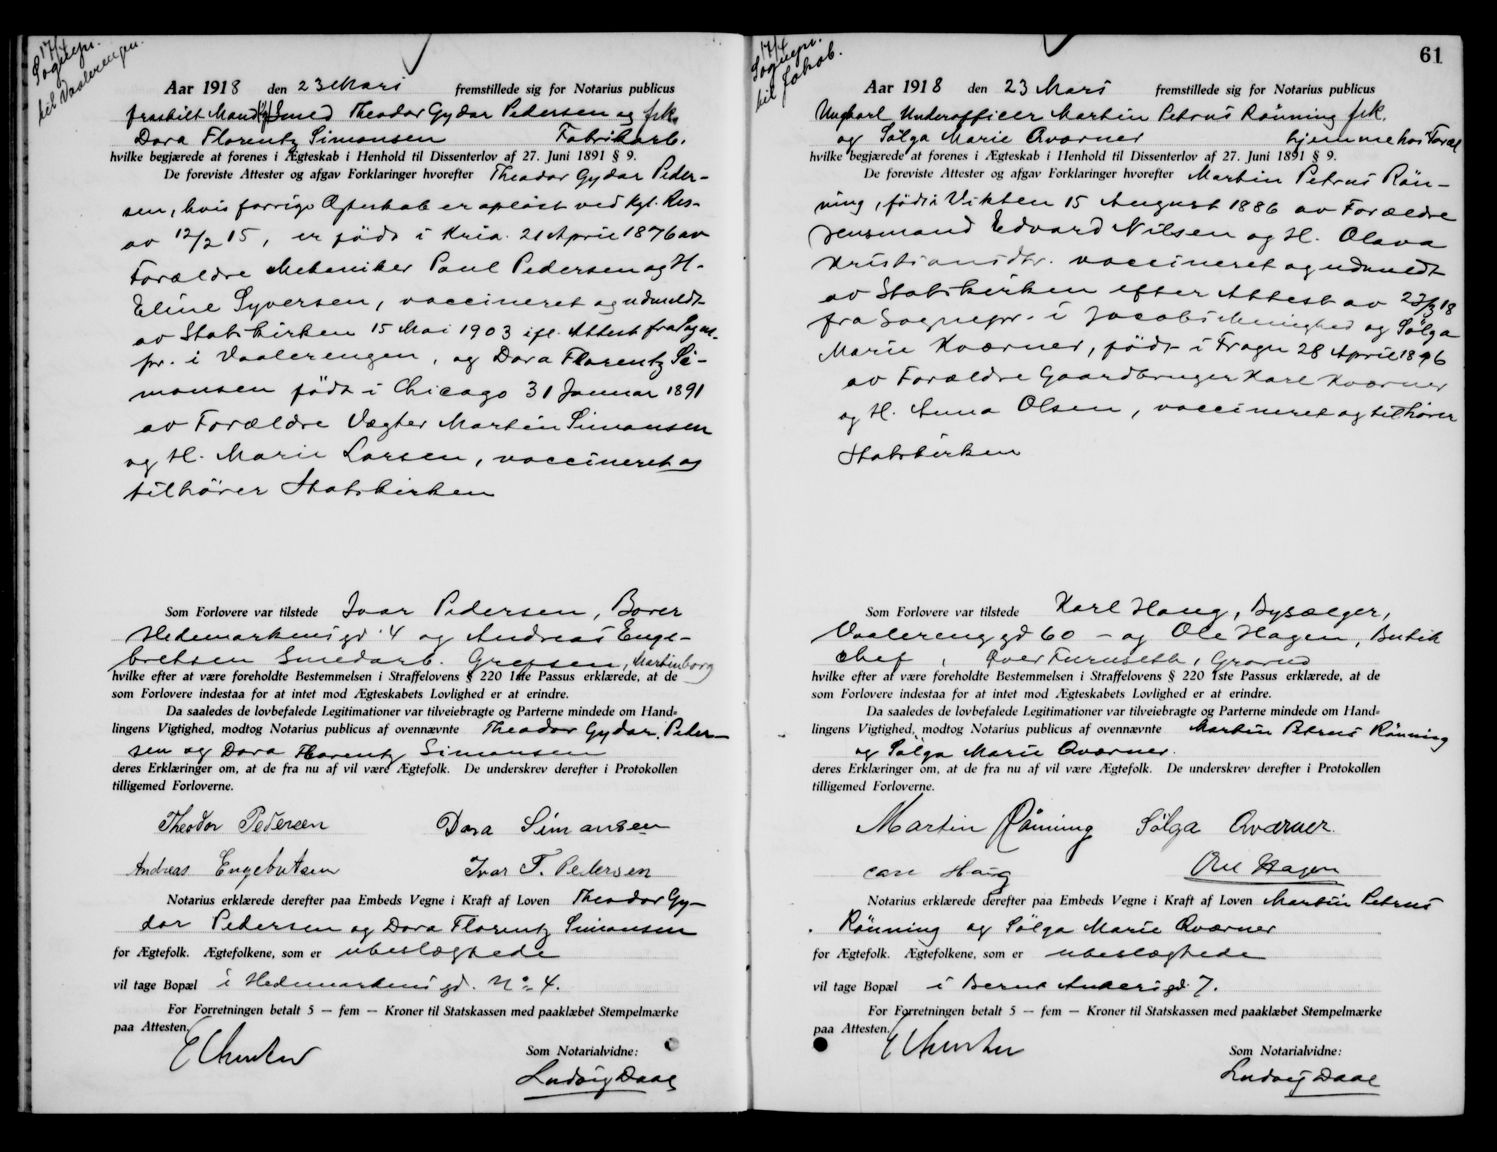 17/4
Sognepr.
til Vaalerengen.
Aar 1918 den 23 Mars fremstillede sig for Notarius publicus
fraskilt Mand Smed Theodor Gydar Pedersen og frk.
Dora Florentz Simonsen Fabrikarb.
hvilke begjærede at forenes i Ægteskab i Henhold til Dissenterlov af 27. Juni 1891 § 9.
De foreviste Attester og afgav Forklaringer hvorefter Theodor Gydar Peder-
sen, hvis forrige Ægteskab er opløst ved Kgl. Res-
av 12/2 15, er født i Kria. 21 April 1876 av
Forældre Mekaniker Paul Pedersen og H.
Eline Syversen, vaccineret og udmeldt
av Statskirken 15 Mai 1903 ifl. Attest fra Sogne-
pr. i Vaalerengen, og Dora Florentz Si-
monsen født i Chicago 31 Januar 1891
av Forældre Vægter Martin Simonsen
og H. Marie Larsen, vaccineret og
tilhører Statskirken
Som Forlovere var tilstede Ivar Pedersen, Borer
Hedemarkens gd. 4 og Andreas Enge-
bretsen Smedarb. Grefsen, Martinborg
hvilke efter at være foreholdte Bestemmelsen i Straffelovens § 220 1ste Passus erklærede, at de
som Forlovere indestaa for at intet mod Ægteskabets Lovlighed er at erindre.
Da saaledes de lovbefalede Legitimationer var tilveiebragte og Parterne mindede om Hand-
lingens Vigtighed, modtog Notarius publicus af ovennævnte Theodor Gydar Peder-
sen og Dora Florentz Simonsen
deres Erklæringer om, at de fra nu af vil være Ægtefolk. De underskrev derefter i Protokollen
tilligemed Forloverne.
Theodor Pedersen Dora Simonsen
Andreas Engebretsen Ivar F. Pedersen
Notarius erklærede derefter paa Embeds Vegne i Kraft af Loven Theodor Gy-
dar Pedersen og Dora Florentz Simonsen
for Ægtefolk. Ægtefolkene, som er ubeslægtede
vil tage Bopæl i Hedemarkens gd. No 4.
For Forretningen betalt 5 — fem — Kroner til Statskassen med paaklæbet Stempelmærke
paa Attesten.
Som Notarialvidne:
Ludvig Daae
61
17/4
Sognepr.
til Jakob.
Aar 1918 den 23 Mars fremstillede sig for Notarius publicus
Ungkarl Underofficer Martin Petrus Rönning frk.
og Sølga Marie Qværner hjemme hos Foræl
hvilke begjærede at forenes i Ægteskab i Henhold til Dissenterlov af 27. Juni 1891 § 9.
De foreviste Attester og afgav Forklaringer hvorefter Martin Petrus Rön-
ning, født i Vikten 15 August 1886 av Forældre
Lensmand Edvard Nilsen og H. Olava
Kristiansdtr. vaccineret og udmeldt
av Statskirken efter Attest av 23/3 18
fra Sognepr. i Jacobs Menighed og Sølga
Marie Kværner, født i Frogn 28 April 1896
av Forældre Gaardbruger Karl Kværner
og H. Anna Olsen, vaccineret og tilhører
Statskirken
Som Forlovere var tilstede Karl Haug, Bysælger,
Vaalereng gd 60 - og Ole Hagen, Butik
chef, Furuseth, Grorud
hvilke efter at være foreholdte Bestemmelsen i Straffelovens § 220 1ste Passus erklærede, at de
som Forlovere indestaa for at intet mod Ægteskabets Lovlighed er at erindre.
Da saaledes de lovbefalede Legitimationer var tilveiebragte og Parterne mindede om Hand-
lingens Vigtighed, modtog Notarius publicus af ovennævnte Martin Petrus Rönning
og Sølga Marie Qværner.
deres Erklæringer om, at de fra nu af vil være Ægtefolk. De underskrev derefter i Protokollen
tilligemed Forloverne.
Martin Rönning Sølga Qværner.
Carl Haug Ole Hagen
Notarius erklærede derefter paa Embeds Vegne i Kraft af Loven Martin Petrus
Rönning og Sølga Marie Qværner
for Ægtefolk. Ægtefolkene, som er ubeslægtede
vil tage Bopæl i Bernt Ankersgd. 7.
For Forretningen betalt 5 — fem — Kroner til Statskassen med paaklæbet Stempelmærke
paa Attesten.
Som Notarialvidne:
Ludvig Daae